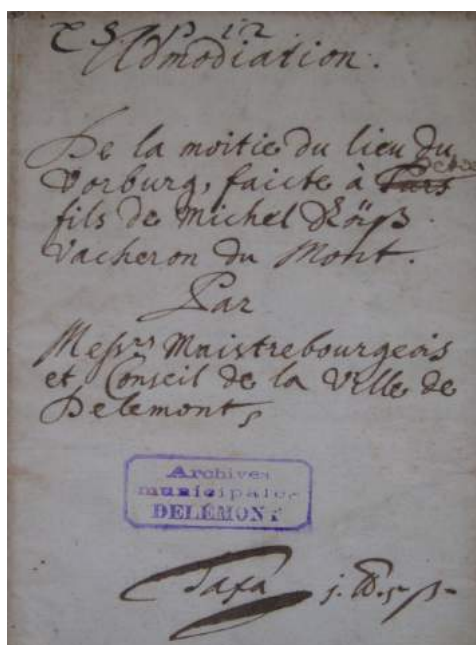 Admodiation.
De la moitie du lieu du
Vorburg, faicte à
fils de Michel
Vacheron du Mont.
Par
Messrs Maistrebourgeois
et Conseil de la Ville de
Delemont,
Archives
municipales
DELÉMONT
Taxa